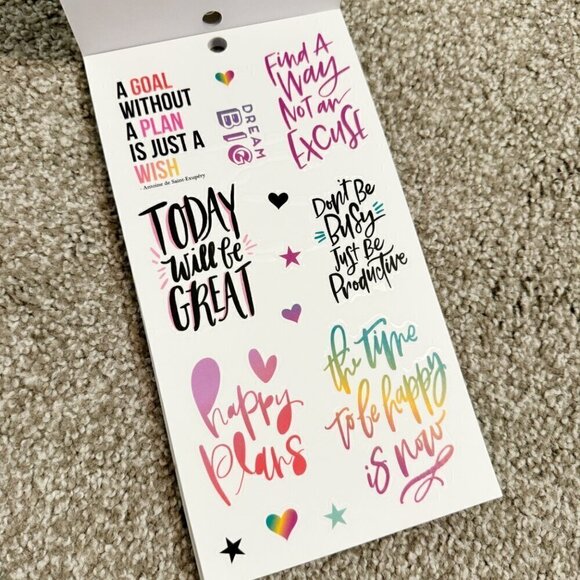 A GOAL
WITHOUT
A PLAN
IS JUST A
WISH
- Antoine de Saint-Exupéry
DREAM
BIG
Find A
Way
Not an
Excuse
TODAY
will be
GREAT
Don't Be
Busy
Just Be
Productive
happy
plans
the time
to be happy
is now